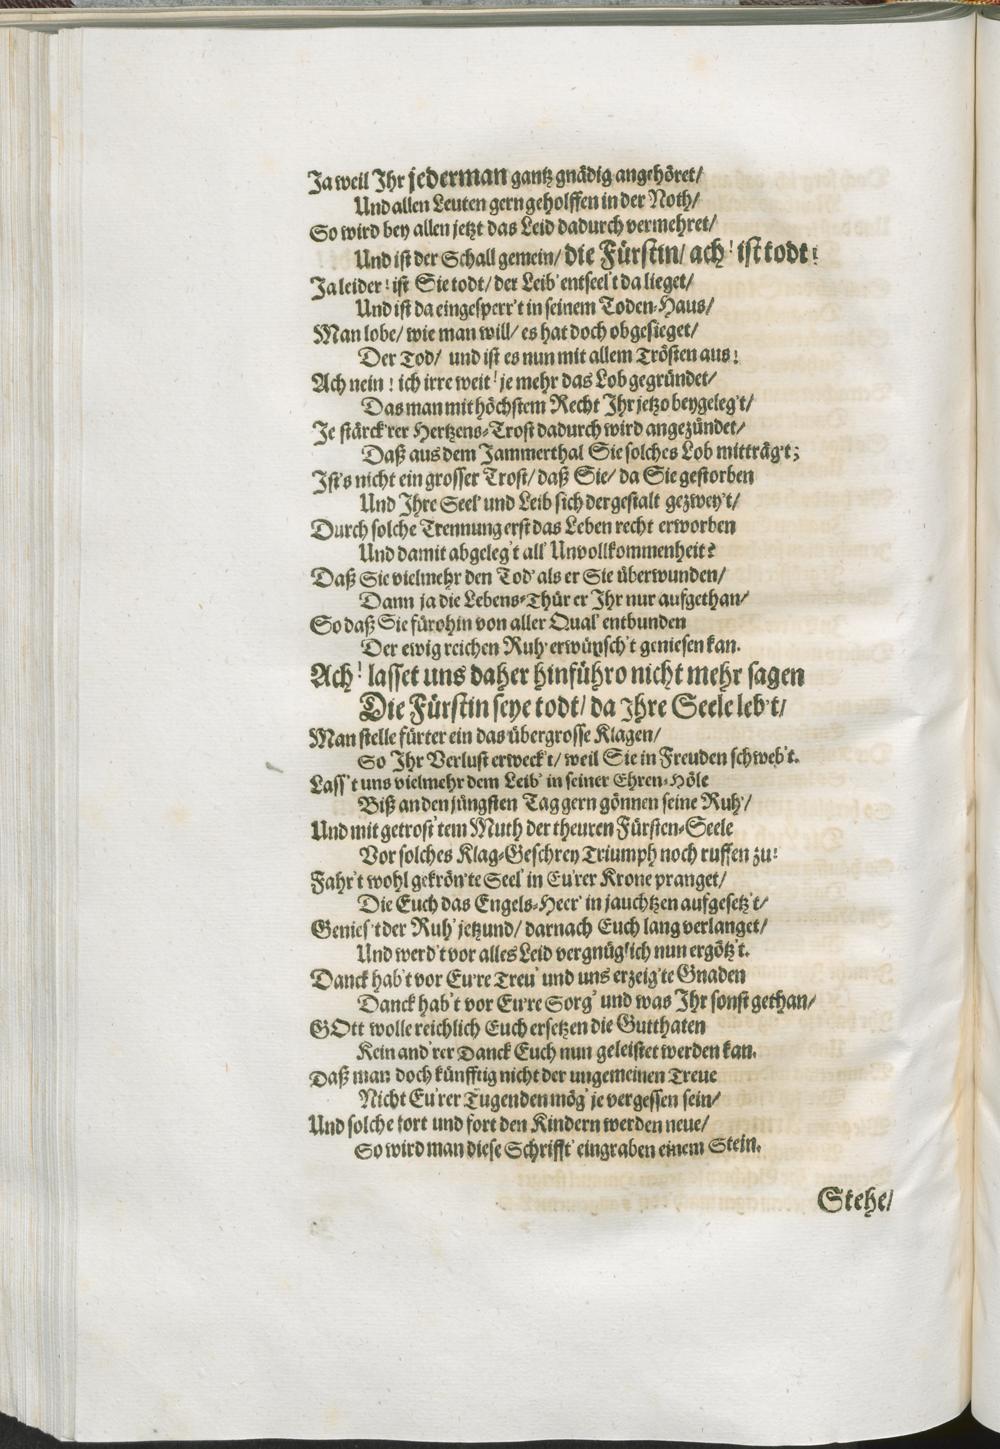 Ja weil Ihr jederman gantz gnädig angehöret/
Und allen Leuten gern geholffen in der Noth/
So wird bey allen jetzt das Leid dadurch vermehret/
Und ist der Schall gemein/ die Fürstin/ ach! ist todt!
Ja leider! ist Sie todt/ der Leib' entseel't da lieget/
Und ist da eingesperr't in seinem Toden-Haus/
Man lobe/ wie man will/ es hat doch obgesieget/
Der Tod/ und ist es nun mit allem Trösten aus!
Ach nein! ich irre weit! je mehr das Lob gegründet/
Das man mit höchstem Recht Ihr jetzo beygeleg't/
Je stärck'rer Hertzens-Trost dadurch wird angezündet/
Daß aus dem Jammerthal Sie solches Lob mitträg't;
Ist's nicht ein grosser Trost/ daß Sie/ da Sie gestorben
Und Ihre Seel' und Leib sich dergestalt gezwey't/
Durch solche Trennung erst das Leben recht erworben
Und damit abgeleg't all' Unvollkommenheit?
Daß Sie vielmehr den Tod' als er Sie überwunden/
Dann ja die Lebens-Thür er Ihr nur aufgethan/
So daß Sie fürohin von aller Qual' entbunden
Der ewig reichen Ruh' erwünsch't geniesen kan.
Ach! lasset uns daher hinführo nicht mehr sagen
Die Fürstin seye todt/ da Ihre Seele leb't/
Man stelle fürter ein das übergrosse Klagen/
So Ihr Verlust erweck't/ weil Sie in Freuden schweb't.
Lass't uns vielmehr dem Leib' in seiner Ehren-Höle
Biß an den jüngsten Tag gern gönnen seine Ruh'/
Und mit getrost'tem Muth der theuren Fürsten-Seele
Vor solches Klag-Geschrey Triumph noch ruffen zu:
Fahr't wohl gekrön'te Seel' in Eu'rer Krone pranget/
Die Euch das Engels-Heer' in jauchtzen aufgesetz't/
Genies't der Ruh' jetzund/ darnach Euch lang verlanget/
Und werd't vor alles Leid vergnüglich nun ergötz't.
Danck hab't vor Eu're Treu' und uns erzeig'te Gnaden
Danck hab't vor Eu're Sorg' und was Ihr sonst gethan/
GOtt wolle reichlich Euch ersetzen die Gutthaten
Kein and'rer Danck Euch nun geleistet werden kan.
Daß man doch künfftig nicht der ungemeinen Treue
Nicht Eu'rer Tugenden mög' je vergessen sein/
Und solche fort und fort den Kindern werden neue/
So wird man diese Schrifft' eingraben einem Stein.
Stehe/